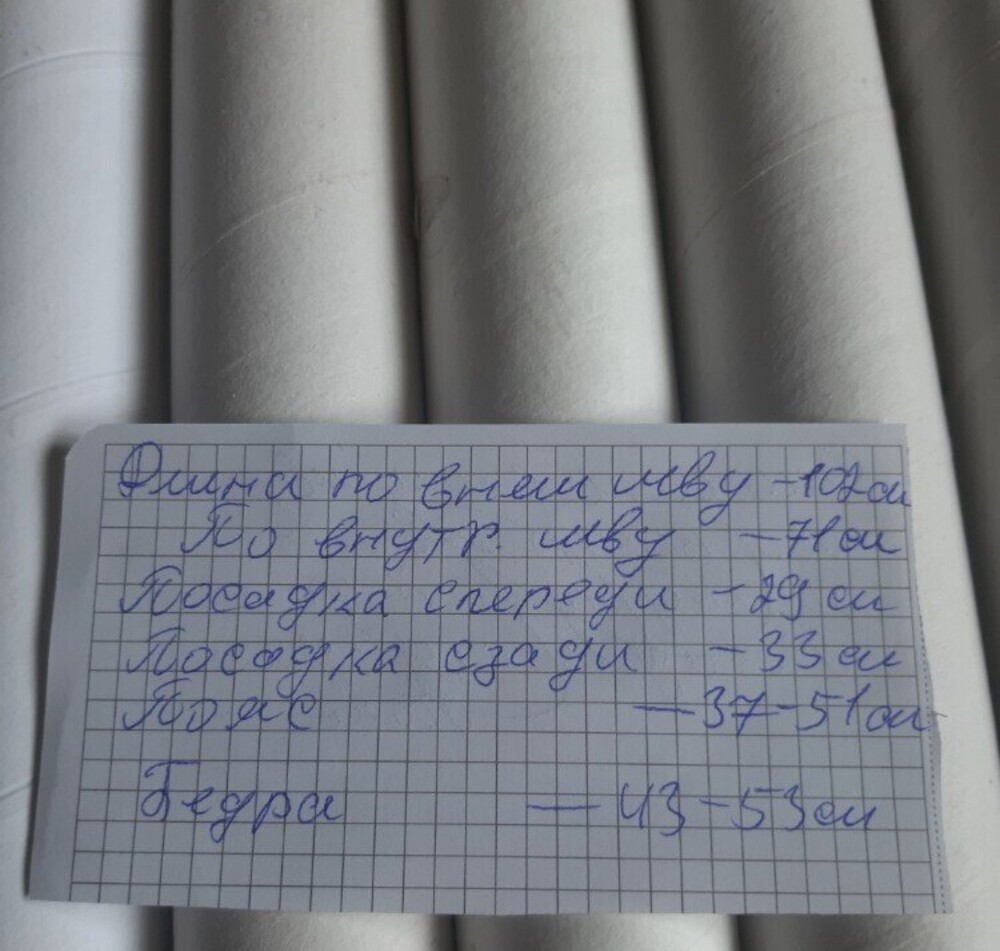 Длина по внеш шву - 102 см
По внутр. шву - 71 см
Посадка спереди - 29 см
Посадка сзади - 33 см
Пояс — 37-51 см
Бедра — 43-53 см